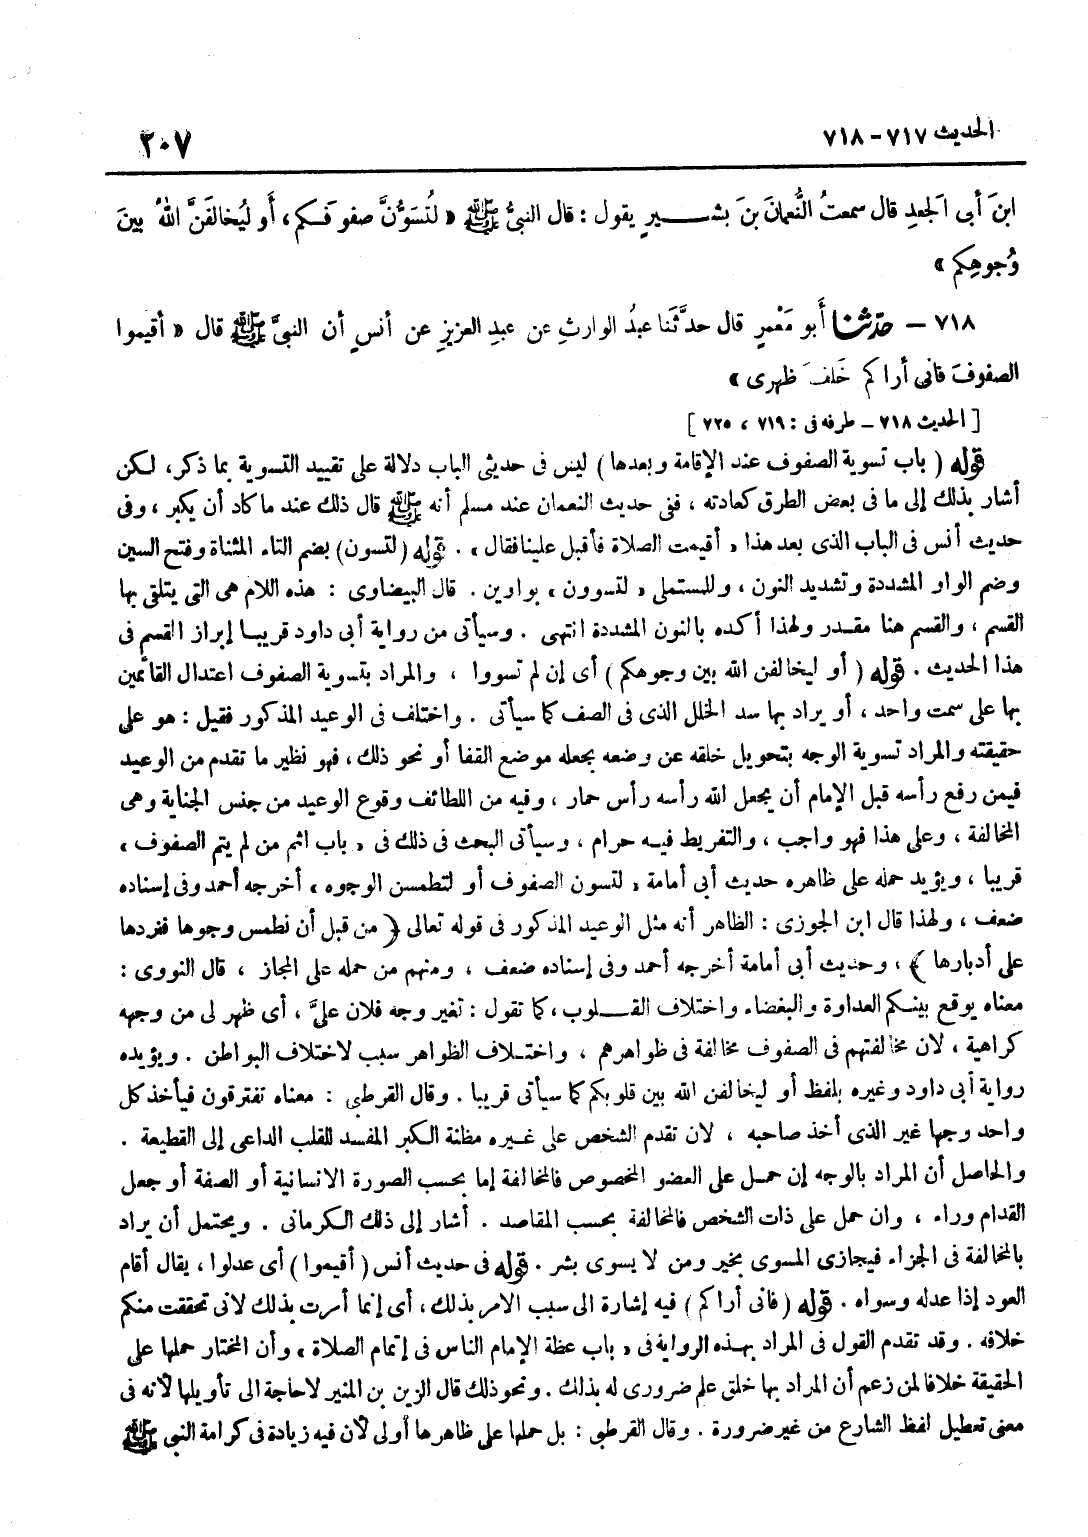 الحديث ٧١٧ - ٧١٨
٢٠٧
ابنَ أبى الجعدِ قال سمعتُ النُّعمانَ بنَ بشيرٍ يقول : قال النبىُّ ﷺ « لتُسَوُّنَّ صفوفكم ، أو ليُخالفَنَّ اللهُ بينَ
وُجوهِكم »
٧١٨ – حدّثنا أبو مَعْمرٍ قال حدَّثَنا عبدُ الوارثِ عن عبدِ العزيزِ عن أنسٍ أن النبىَّ ﷺ قال « أقيموا
الصفوفَ فانى أراكم خَلفَ ظهرى »
[ الحديث ٧١٨ – طرفه فى : ٧١٩ ، ٧٢٥ ]
قوله ( باب تسوية الصفوف عند الإقامة وبعدها ) ليس فى حديثى الباب دلالة على تقييد التسوية بما ذكر، لكن
أشار بذلك إلى ما فى بعض الطرق كعادته ، ففى حديث النعمان عند مسلم أنه ﷺ قال ذلك عند ما كاد أن يكبر ، وفى
حديث أنس فى الباب الذى بعد هذا « أقيمت الصلاة فأقبل علينا فقال » . قوله ( لتسون ) بضم التاء المثناة وفتح السين
وضم الواو المشددة وتشديد النون ، وللمستملى « لتسوون » بواوين . قال البيضاوى : هذه اللام هى التى يتلقى بها
القسم ، والقسم هنا مقدر ولهذا أكده بالنون المشددة انتهى . وسيأتى من رواية أبى داود قريبا إبراز القسم فى
هذا الحديث . قوله ( أو ليخالفن الله بين وجوهكم ) أى إن لم تسووا ، والمراد بتسوية الصفوف اعتدال القائمين
بها على سمت واحد ، أو يراد بها سد الخلل الذى فى الصف كما سيأتى . واختلف فى الوعيد المذكور فقيل : هو على
حقيقته والمراد تسوية الوجه بتحويل خلقه عن وضعه بجعله موضع القفا أو نحو ذلك ، فهو نظير ما تقدم من الوعيد
فيمن رفع رأسه قبل الإمام أن يجعل الله رأسه رأس حمار ، وفيه من اللطائف وقوع الوعيد من جنس الجناية وهى
المخالفة ، وعلى هذا فهو واجب ، والتفريط فيه حرام ، وسيأتى البحث فى ذلك فى « باب اثم من لم يتم الصفوف »
قريبا ، ويؤيد حمله على ظاهره حديث أبى أمامة « لتسون الصفوف أو لتطمسن الوجوه » أخرجه أحمد وفى إسناده
ضعف ، ولهذا قال ابن الجوزى : الظاهر أنه مثل الوعيد المذكور فى قوله تعالى ﴿ من قبل أن نطمس وجوها فنردها
على أدبارها ﴾ ، وحديث أبى أمامة أخرجه أحمد وفى إسناده ضعف ، ومنهم من حمله على المجاز ، قال النووى :
معناه يوقع بينكم العداوة والبغضاء واختلاف القلوب ، كما تقول : تغير وجه فلان علىَّ ، أى ظهر لى من وجهه
كراهية ، لان مخالفتهم فى الصفوف مخالفة فى ظواهرهم ، واختلاف الظواهر سبب لاختلاف البواطن . ويؤيده
رواية أبى داود وغيره بلفظ أو ليخالفن الله بين قلوبكم كما سيأتى قريبا . وقال القرطبى : معناه تفترقون فيأخذ كل
واحد وجها غير الذى أخذ صاحبه ، لان تقدم الشخص على غيره مظنة الكبر المفسد للقلب الداعى إلى القطيعة .
والحاصل أن المراد بالوجه إن حمل على العضو المخصوص فالمخالفة إما بحسب الصورة الانسانية أو الصفة أو جعل
القدام وراء ، وان حمل على ذات الشخص فالمخالفة بحسب المقاصد . أشار إلى ذلك الكرمانى . ويحتمل أن يراد
بالمخالفة فى الجزاء فيجازى المسوى بخير ومن لا يسوى بشر . قوله فى حديث أنس ( أقيموا ) أى عدلوا ، يقال أقام
العود إذا عدله وسواه . قوله ( فانى أراكم ) فيه إشارة الى سبب الامر بذلك ، أى إنما أمرت بذلك لانى تحققت منكم
خلافه . وقد تقدم القول فى المراد بهذه الرواية فى « باب عظة الإمام الناس فى إتمام الصلاة » وأن المختار حملها على
الحقيقة خلافا لمن زعم أن المراد بها خلق علم ضرورى له بذلك . ونحو ذلك قال الزين بن المنير لا حاجة الى تأويلها لأنه فى
معنى تعطيل لفظ الشارع من غير ضرورة . وقال القرطبى : بل حملها على ظاهرها أولى لأن فيه زيادة فى كرامة النبى ﷺ